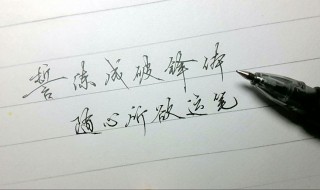 誓练成破锋体
随心所欲运笔